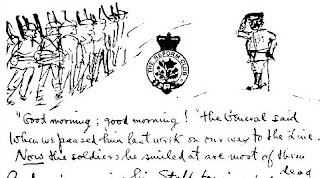 THE REFORM CLUB
"Good morning; good morning!" the General said
When we passed him last week on our way to the Line.
Now the soldiers he smiled at are most of them
dead